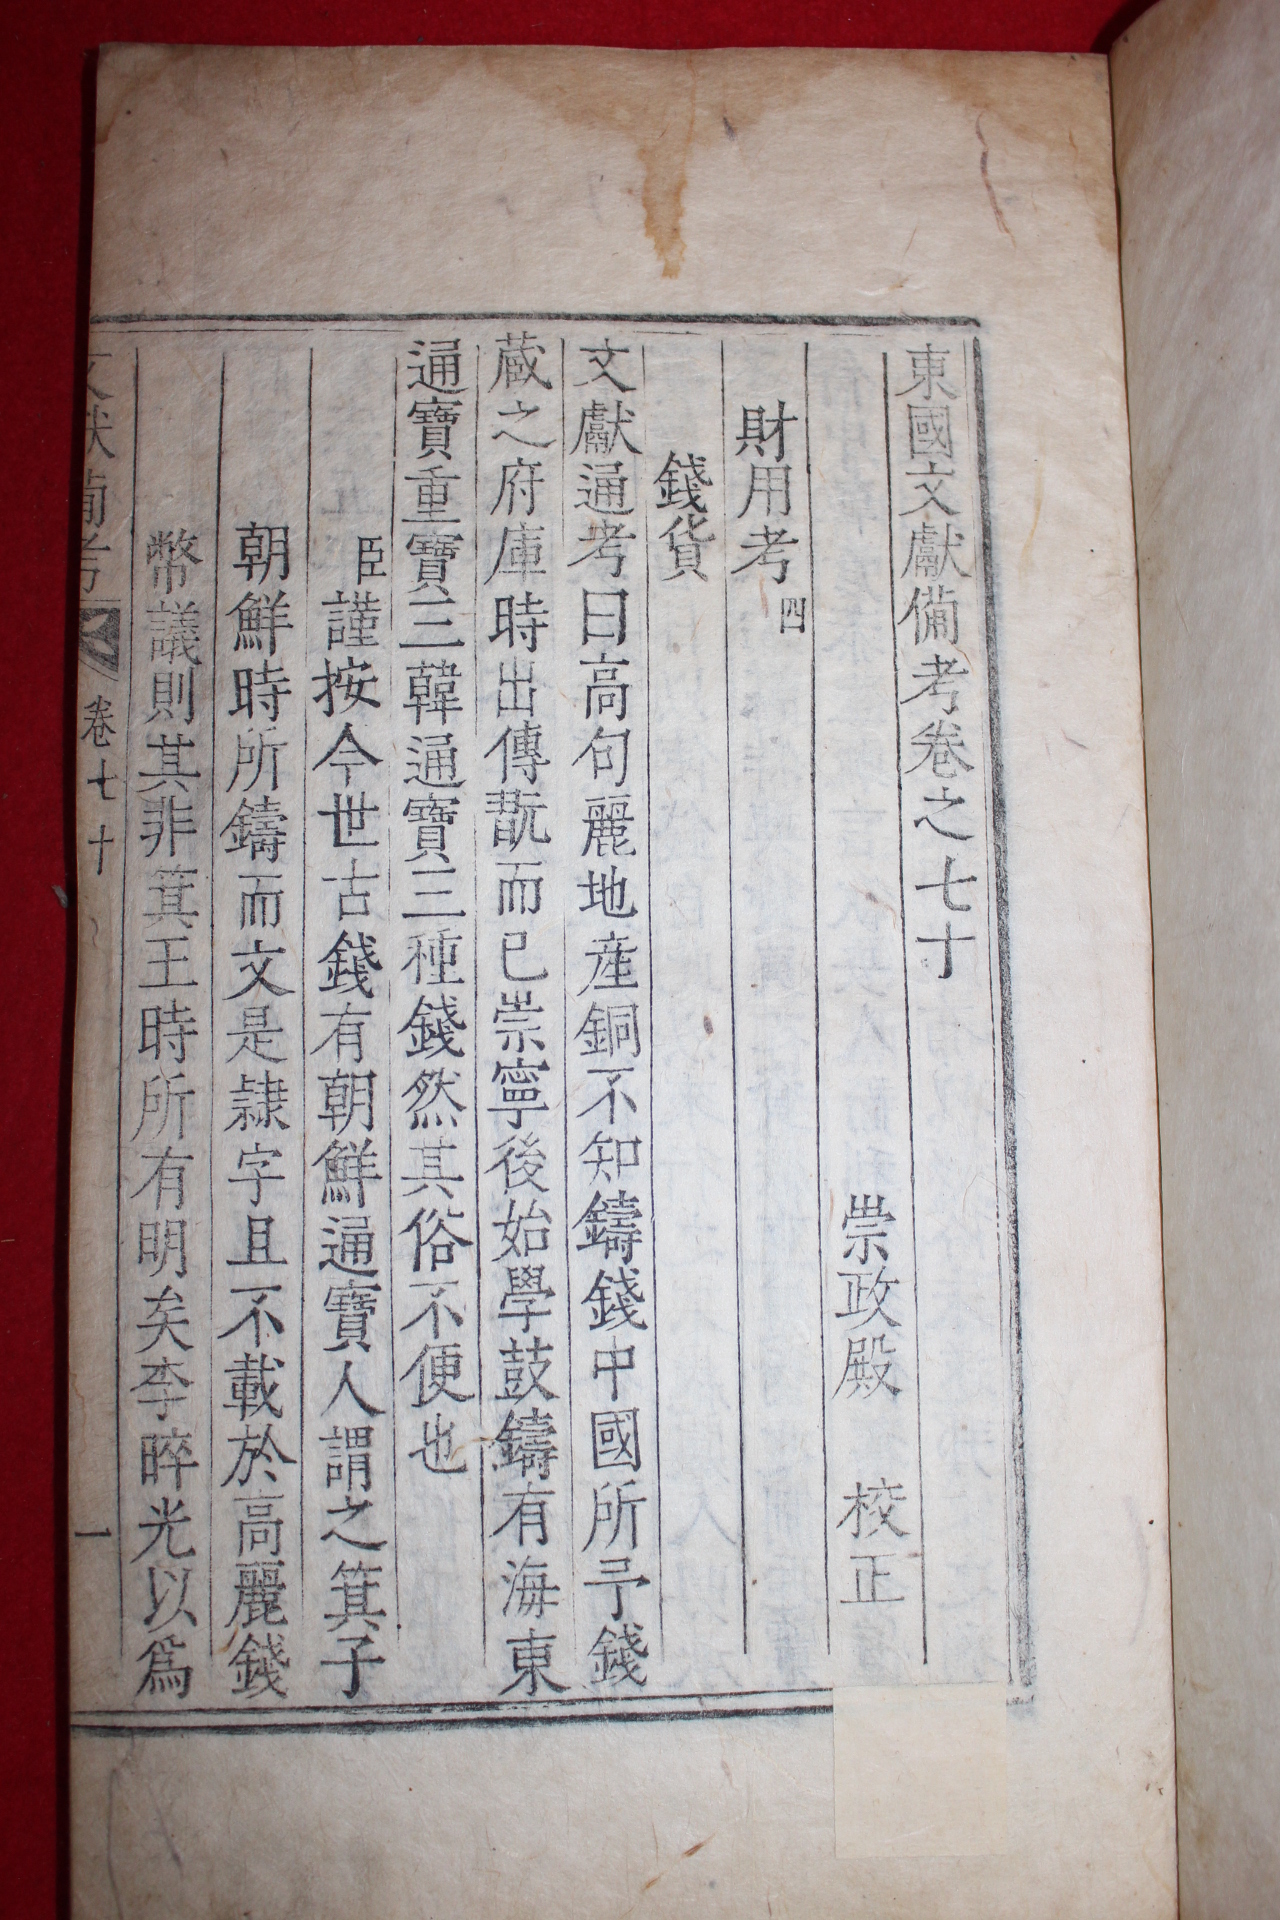 東國文獻備考卷之七十
崇政殿 校正
財用考 四
錢貨
文獻通考曰高句麗地産銅不知鑄錢中國所予錢
蔵之府庫時出傳翫而已崇寧後始學鼓鑄有海東
通寶重寶三韓通寶三種錢然其俗不便也
臣謹按今世古錢有朝鮮通寶人謂之箕子
朝鮮時所鑄而文是隷字且不載於高麗錢
幣議則其非箕王時所有明矣李晬光以爲
文獻備考 卷七十 一